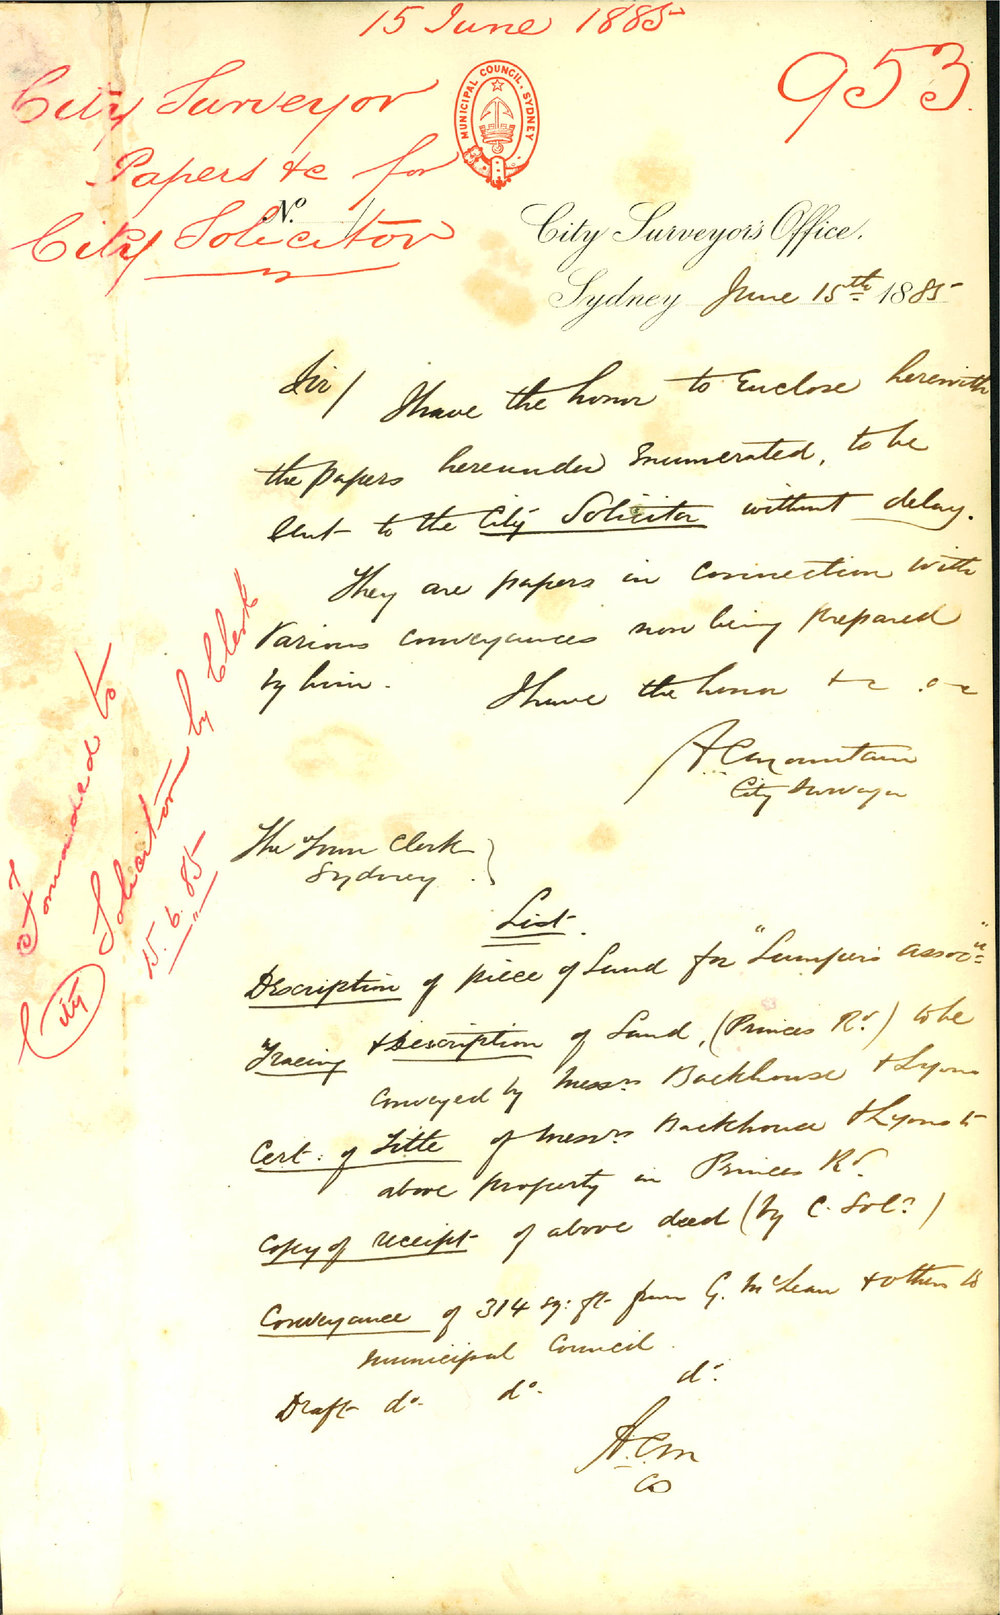 15 June 1885
953
City Surveyor
Papers &c for
City Solicitor
MUNICIPAL COUNCIL. SYDNEY
No.
City Surveyor's Office,
Sydney June 15th 1885
Sir/ I have the honor to Enclose herewith
the papers hereunder Enumerated, to be
sent to the City Solicitor without delay.
They are papers in connection with
various conveyances now being prepared
by him. I have the honor &c &c
A C Mountain
City Surveyor
The Town Clerk
Sydney
Forwarded to
City Solicitor by Clerk
15.6.85
List.
Description of piece of Land for "Lumpers assocn"
Tracing & Description of Land, (Princes Rd.) to be
conveyed by Messrs Backhouse & Lyons
Cert: of Title of Messrs Backhouse & Lyons to
above property in Princes Rd.
Copy of receipt of above deed (by C. Solr)
Conveyance of 314 sq: ft. from G. McLean & others to
Municipal Council.
Draft do. do. do.
A.C.M
CS